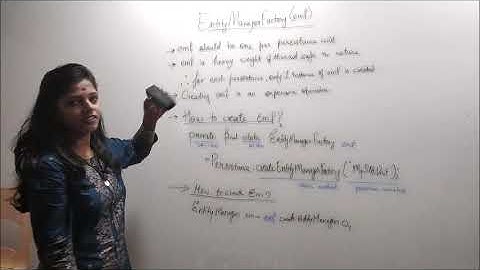 EntityManagerFactory(emf)
→ emf should be one per persistence unit
→ emf is heavy weight & thread safe in nature
∴ for each persistence only 1 instance of emf is created
→ Creating emf is an expensive operation
→ How to create emf?
private final static EntityManagerFactory emf
= Persistence.createEntityManagerFactory("MyPerUnit");
→ How to create Em?
EntityManager em = emf.createEntityManager();